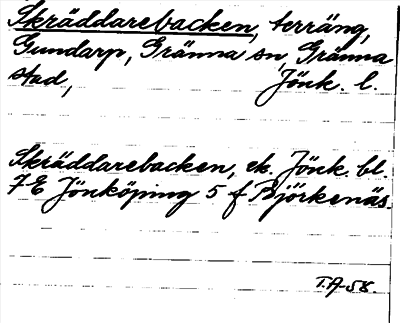 Skräddarebacken, terräng,
Gundarp, Gränna sn, Gränna
stad, Jönk. l.
Skräddarebacken, ek. Jönk. bl.
7E Jönköping 5 f Björkenäs.
T.A-58.